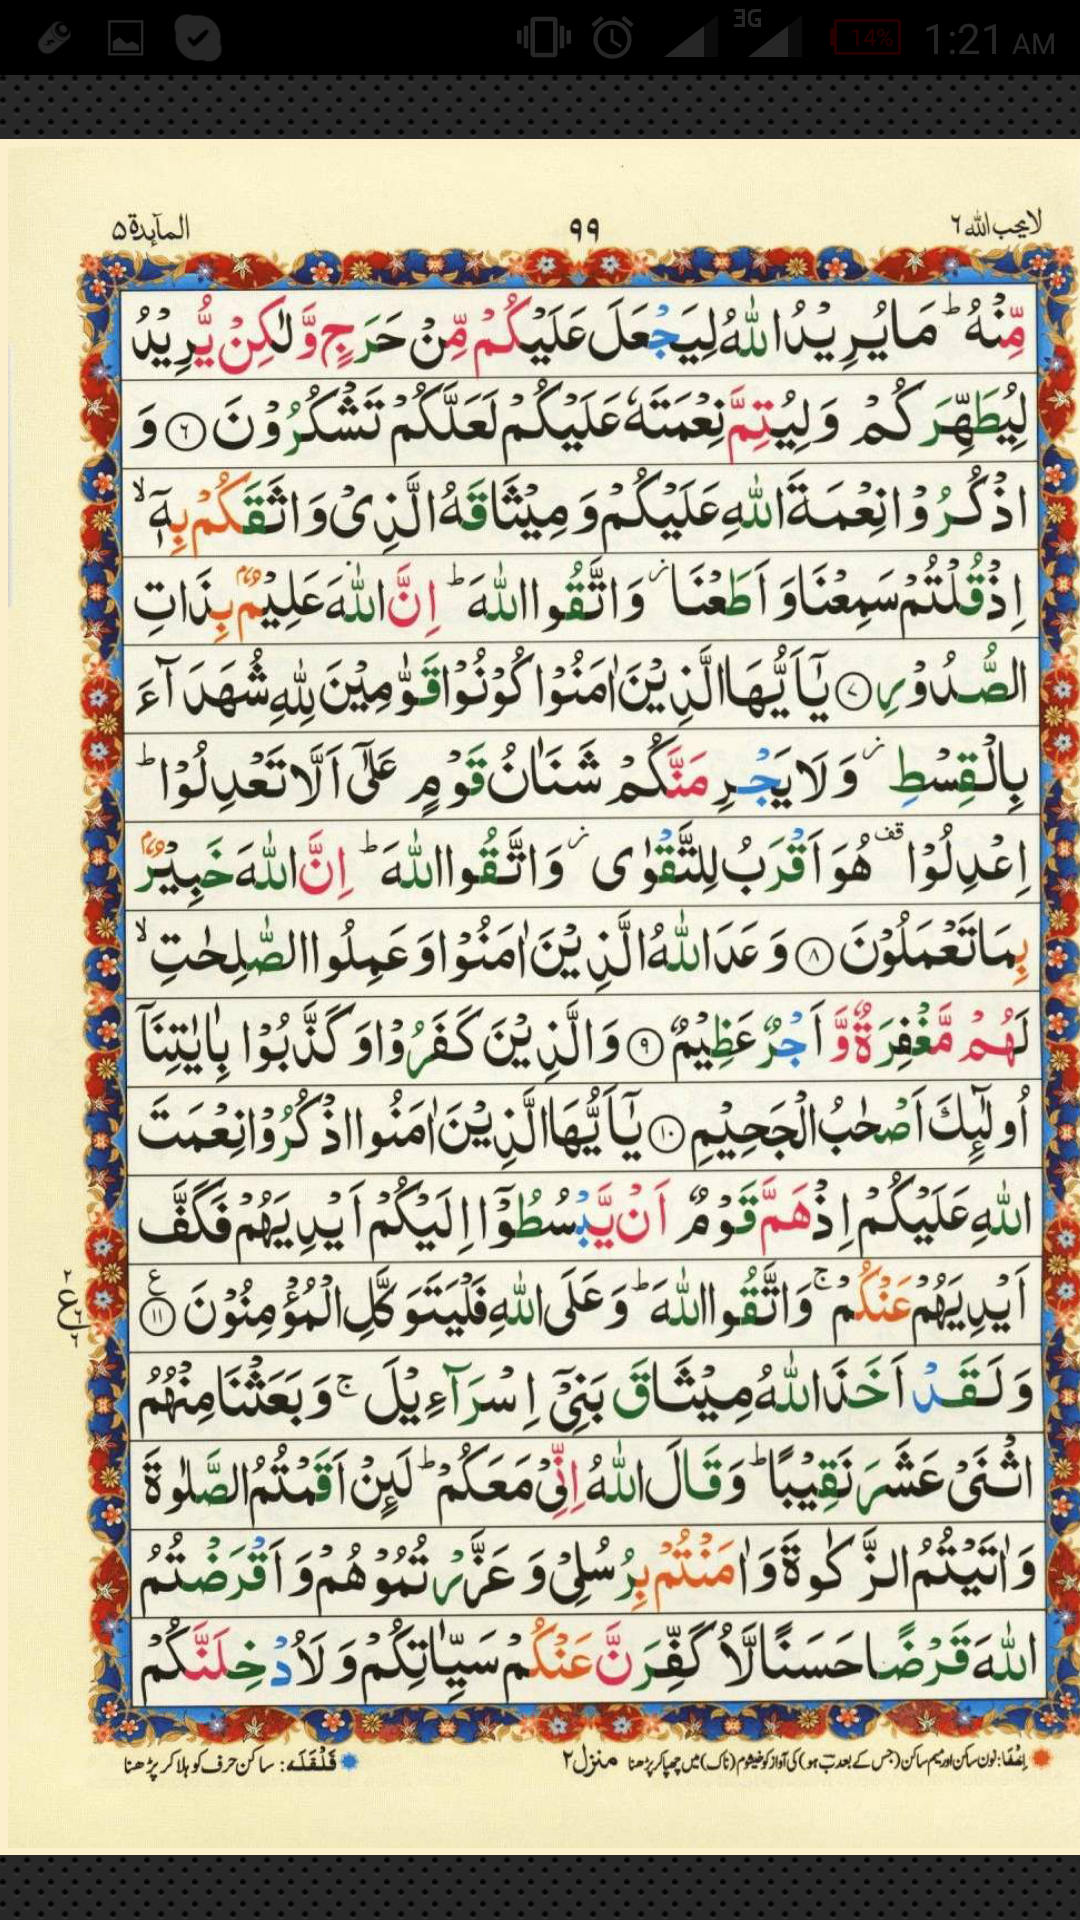 3G
14%
1:21 AM
لا یحب الله ٦
٩٩
المآئدة ٥
مِّنْهُ ؕ مَا يُرِيْدُ اللّٰهُ لِيَجْعَلَ عَلَيْكُمْ مِّنْ حَرَجٍ وَّلٰكِنْ يُّرِيْدُ
لِيُطَهِّرَكُمْ وَلِيُتِمَّ نِعْمَتَهٗ عَلَيْكُمْ لَعَلَّكُمْ تَشْكُرُوْنَ ۝٦ وَ
اذْكُرُوْا نِعْمَةَ اللّٰهِ عَلَيْكُمْ وَمِيْثَاقَهُ الَّذِىْ وَاثَقَكُمْ بِهٖۤ ۙ
اِذْ قُلْتُمْ سَمِعْنَا وَاَطَعْنَا ؗ وَاتَّقُوا اللّٰهَ ؕ اِنَّ اللّٰهَ عَلِيْمٌۢ بِذَاتِ
الصُّدُوْرِ ۝٧ يٰۤاَيُّهَا الَّذِيْنَ اٰمَنُوْا كُوْنُوْا قَوّٰمِيْنَ لِلّٰهِ شُهَدَآءَ
بِالْقِسْطِ ؗ وَلَا يَجْرِمَنَّكُمْ شَنَاٰنُ قَوْمٍ عَلٰۤى اَلَّا تَعْدِلُوْا ؕ
اِعْدِلُوْا قف هُوَ اَقْرَبُ لِلتَّقْوٰى ؗ وَاتَّقُوا اللّٰهَ ؕ اِنَّ اللّٰهَ خَبِيْرٌۢ
بِمَا تَعْمَلُوْنَ ۝٨ وَعَدَ اللّٰهُ الَّذِيْنَ اٰمَنُوْا وَعَمِلُوا الصّٰلِحٰتِ ۙ
لَهُمْ مَّغْفِرَةٌ وَّاَجْرٌ عَظِيْمٌ ۝٩ وَالَّذِيْنَ كَفَرُوْا وَكَذَّبُوْا بِاٰيٰتِنَاۤ
اُولٰٓئِكَ اَصْحٰبُ الْجَحِيْمِ ۝١٠ يٰۤاَيُّهَا الَّذِيْنَ اٰمَنُوا اذْكُرُوْا نِعْمَتَ
اللّٰهِ عَلَيْكُمْ اِذْ هَمَّ قَوْمٌ اَنْ يَّبْسُطُوْۤا اِلَيْكُمْ اَيْدِيَهُمْ فَكَفَّ
اَيْدِيَهُمْ عَنْكُمْ ۚ وَاتَّقُوا اللّٰهَ ؕ وَعَلَى اللّٰهِ فَلْيَتَوَكَّلِ الْمُؤْمِنُوْنَ ۝١١ ع
٢ ع ٦ ٦
وَلَقَدْ اَخَذَ اللّٰهُ مِيْثَاقَ بَنِىْۤ اِسْرَآءِيْلَ ۚ وَبَعَثْنَا مِنْهُمُ
اثْنَىْ عَشَرَ نَقِيْبًا ؕ وَقَالَ اللّٰهُ اِنِّىْ مَعَكُمْ ؕ لَئِنْ اَقَمْتُمُ الصَّلٰوةَ
وَاٰتَيْتُمُ الزَّكٰوةَ وَاٰمَنْتُمْ بِرُسُلِىْ وَعَزَّرْتُمُوْهُمْ وَاَقْرَضْتُمُ
اللّٰهَ قَرْضًا حَسَنًا لَّاُكَفِّرَنَّ عَنْكُمْ سَيِّاٰتِكُمْ وَلَاُدْخِلَنَّكُمْ
اِخْفَا: نون ساکن اور میم ساکن (جس کے بعد ب ہو) کی آواز کو خیشوم (ناک) میں چھپا کر پڑھنا
منزل ٢
قَلْقَلَه: ساکن حرف کو ہلا کر پڑھنا